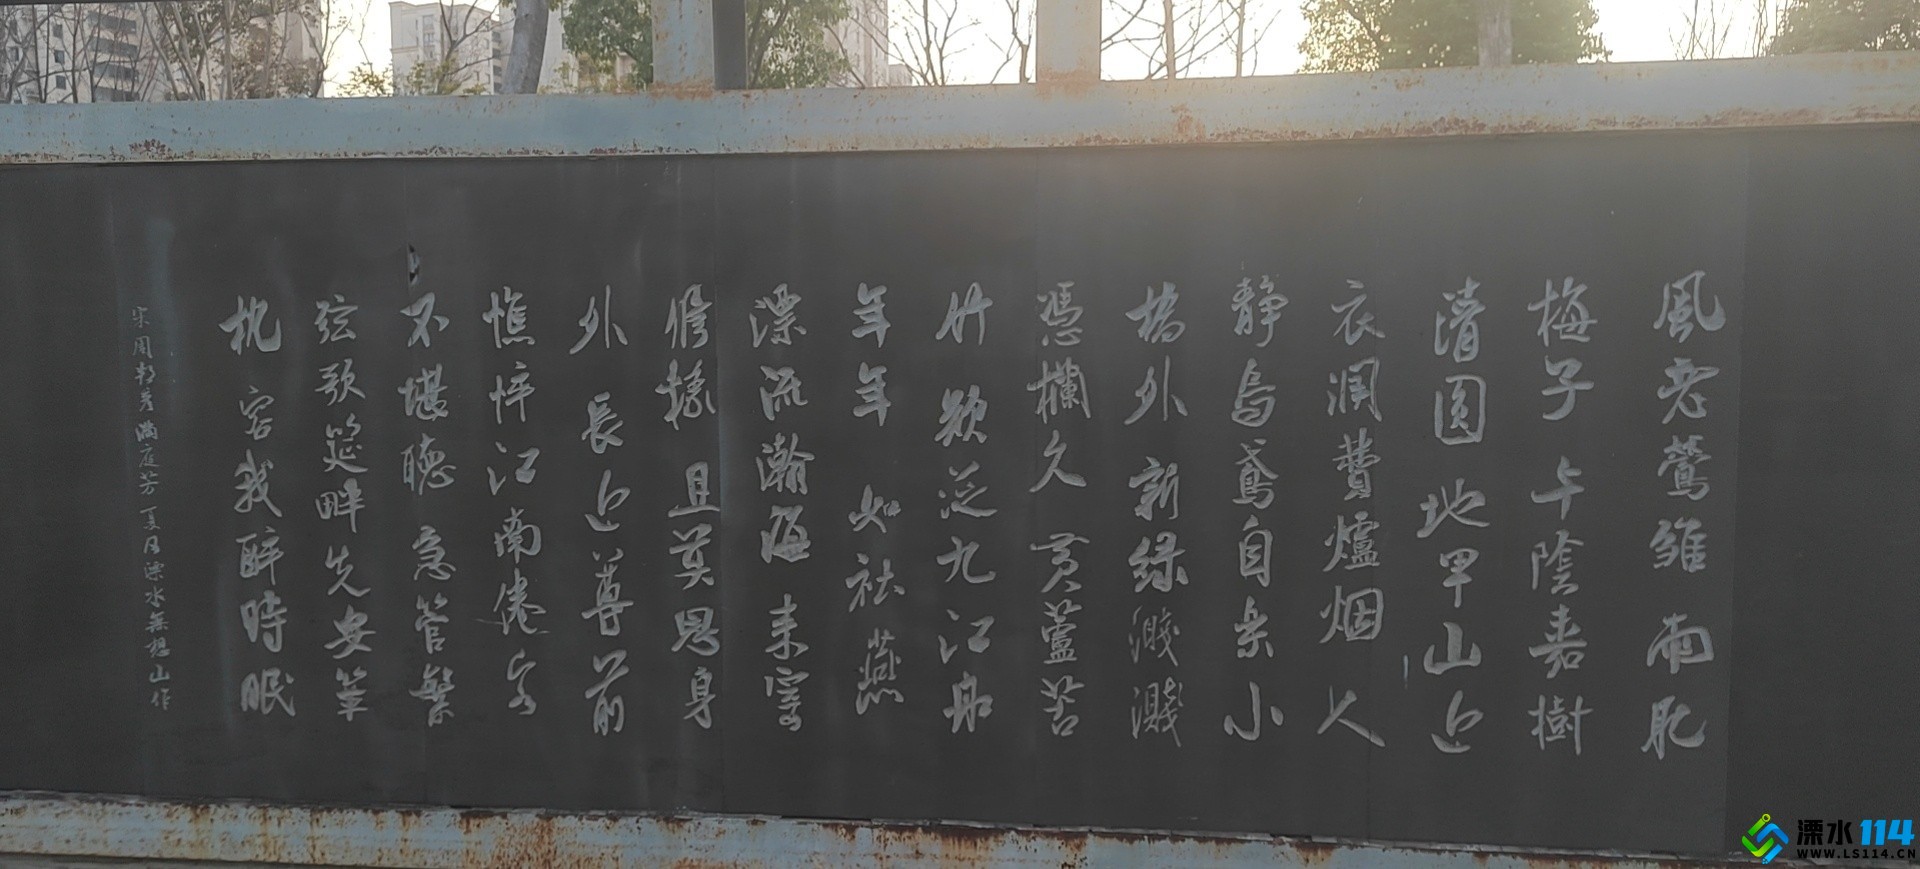 風老鶯雛 雨肥
梅子 午陰嘉樹
清圓 地卑山近
衣潤費爐烟 人
靜烏鳶自樂 小
橋外 新綠濺濺
憑欄久 黃蘆苦
竹 欲泛九江舟
年年 如社燕
漂流瀚海 來寄
修椽 且莫思身
外 長近尊前
憔悴江南倦客
不堪聽 急管繁
弦歌筵畔 先安簟
枕 容我醉時眠
宋周邦彥滿庭芳 夏日溧水無想山作
溧水114
WWW.LS114.CN